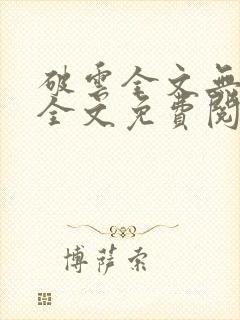 破雲全文無
全文免費閱
博薩索